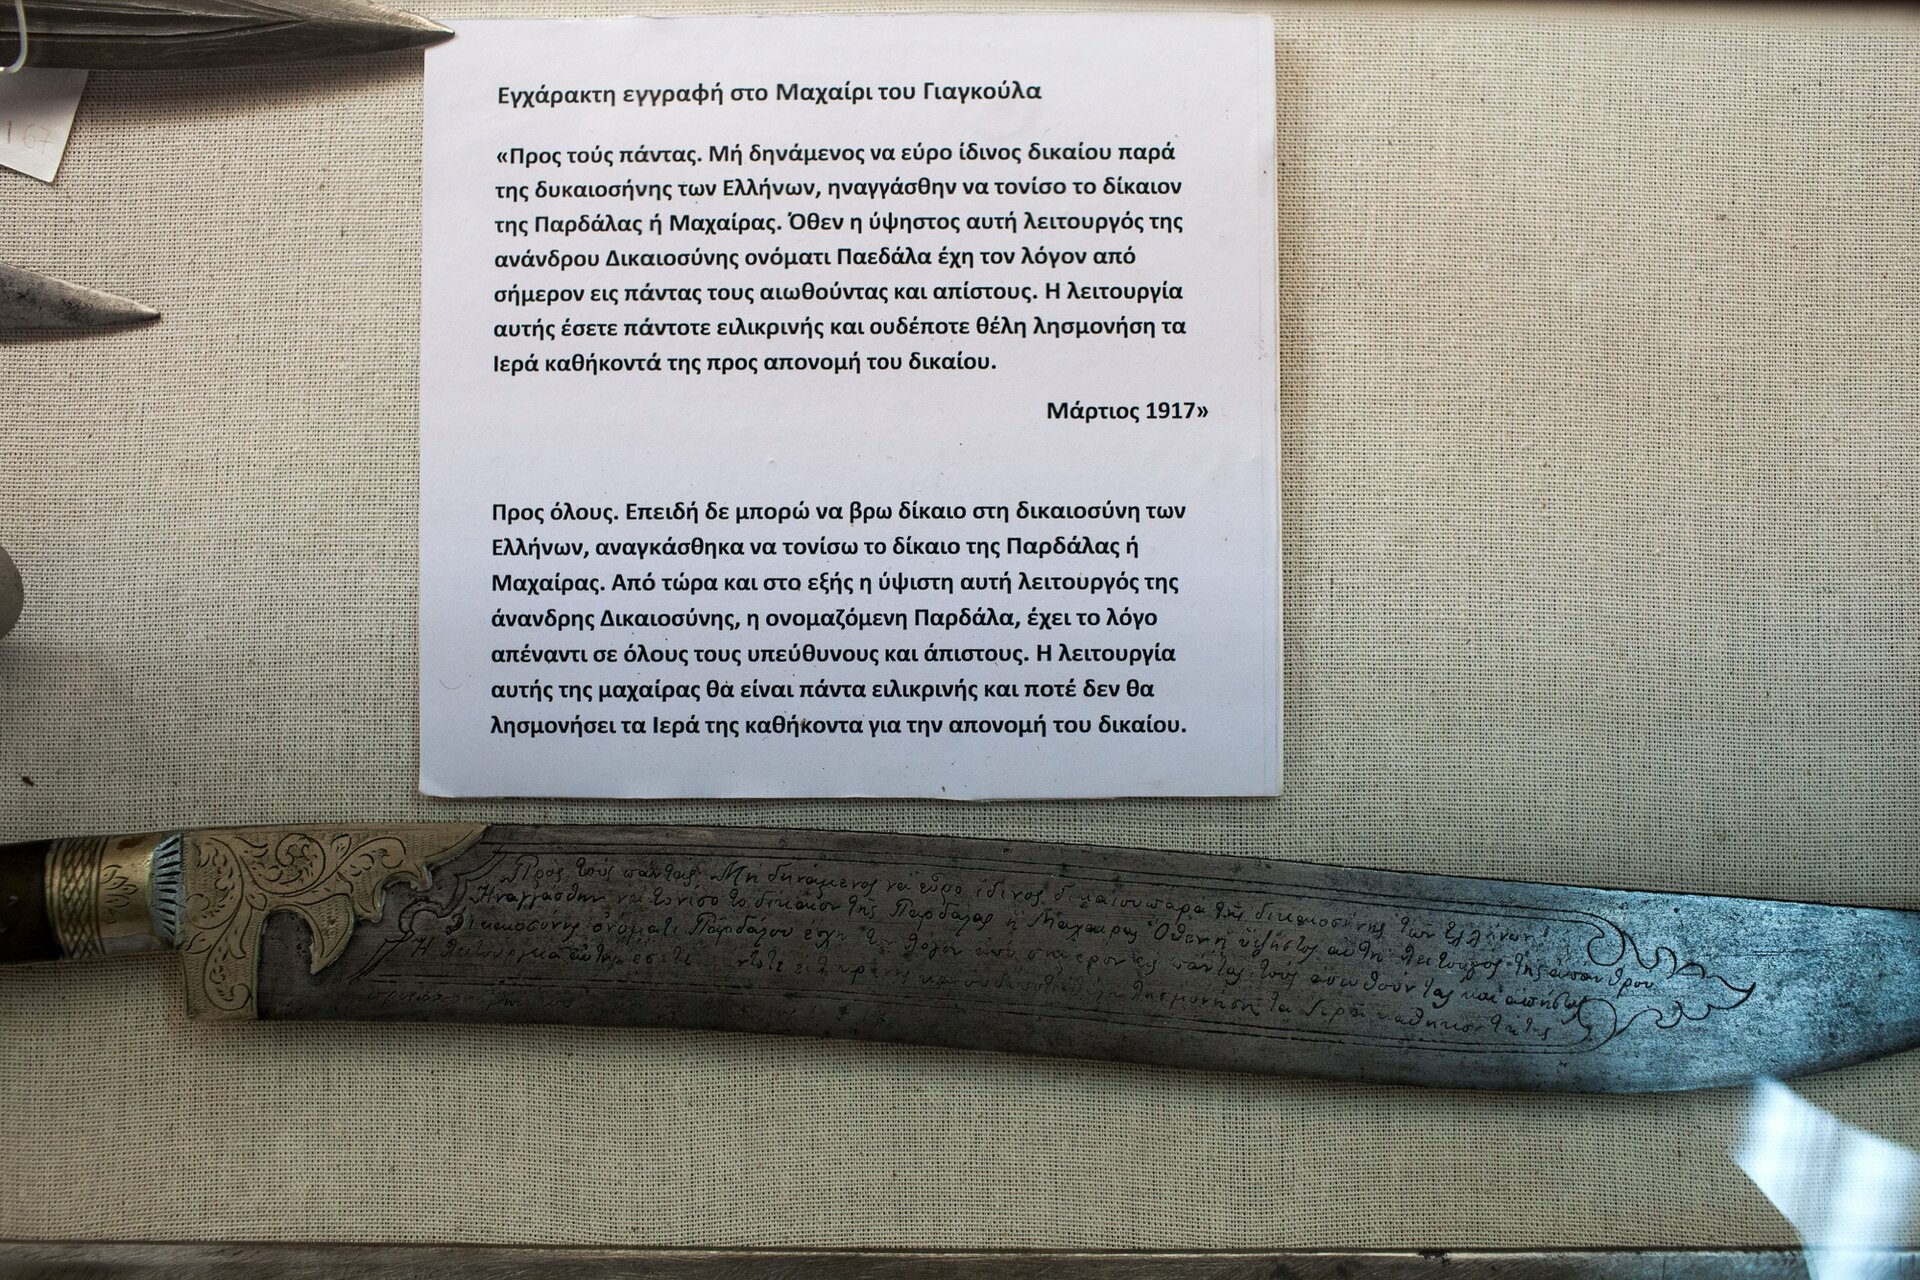 167
Εγχάρακτη εγγραφή στο Μαχαίρι του Γιαγκούλα
«Προς τούς πάντας. Μή δηνάμενος να εύρο ίδινος δικαίου παρά
της δυκαιοσήνης των Ελλήνων, ηναγγάσθην να τονίσο το δίκαιον
της Παρδάλας ή Μαχαίρας. Όθεν η ύψηστος αυτή λειτουργός της
ανάνδρου Δικαιοσύνης ονόματι Παεδάλα έχη τον λόγον από
σήμερον εις πάντας τους αιωθούντας και απίστους. Η λειτουργία
αυτής έσετε πάντοτε ειλικρινής και ουδέποτε θέλη λησμονήση τα
Ιερά καθήκοντά της προς απονομή του δικαίου.
Μάρτιος 1917»
Προς όλους. Επειδή δε μπορώ να βρω δίκαιο στη δικαιοσύνη των
Ελλήνων, αναγκάσθηκα να τονίσω το δίκαιο της Παρδάλας ή
Μαχαίρας. Από τώρα και στο εξής η ύψιστη αυτή λειτουργός της
άνανδρης Δικαιοσύνης, η ονομαζόμενη Παρδάλα, έχει το λόγο
απέναντι σε όλους τους υπεύθυνους και άπιστους. Η λειτουργία
αυτής της μαχαίρας θα είναι πάντα ειλικρινής και ποτέ δεν θα
λησμονήσει τα Ιερά της καθήκοντα για την απονομή του δικαίου.
Πρός τούς πάντας Μη δηνάμενος να εύρο ίδινος δικαίου παρα της δικαιοσύνης των Ελλήνων
Ηναγγάσθην να τονίσο το δίκαιον της Παρδάλας ή Μαχαιρας Όθεν ή ύψηστος αυτη λειτουργος της ανανδρου
Δικαιοσύνης ονόματι Παρδάλου έχη τον λόγον από σημερον εις πάντας τους και
Η λειτουργία λησμονηση τα Ιερα της